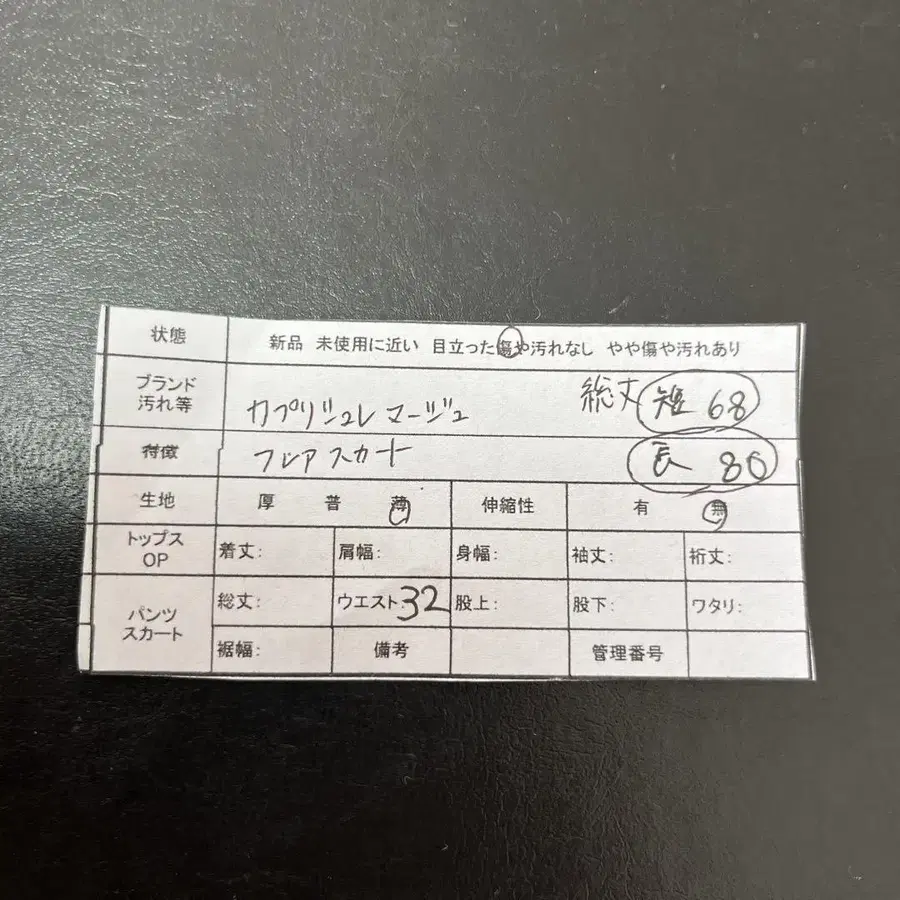 状態 新品 未使用に近い 目立った傷や汚れなし やや傷や汚れあり
ブランド 汚れ等 カプリシュレ マージュ 総丈 短 68
特徴 フレアスカート 長 80
生地 厚 普 薄 伸縮性 有 無
トップス OP 着丈: 肩幅: 身幅: 袖丈: 裄丈:
パンツ スカート 総丈: ウエスト:32 股上: 股下: ワタリ:
裾幅: 備考 管理番号